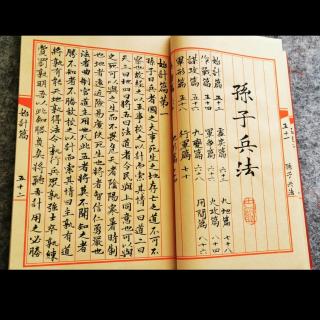 孫子兵法
孫子兵法
始計篇
作戰篇
謀攻篇 五十六
軍形篇
虛實篇
軍爭篇
九變篇
行軍篇
九地篇 七十八
火攻篇 八十四
用間篇 八十六
始計篇第一
孫子曰兵者國之大事死生之地存亡之道不可不
察也故經之以五事校之以計而索其情一曰道二曰
天三曰地四曰將五曰法道者令民與上同意也可與
之死可與之生而不畏危也天者陰陽寒暑時制
也地者遠近險易廣狹死生也將者智信仁勇嚴也
法者曲制官道主用也凡此五者將莫不聞知之者
勝不知者不勝故校之以計而索其情曰主孰有道
將孰有能天地孰得法令孰行兵衆孰強士卒孰練
賞罰孰明吾以此知勝負矣將聽吾計用之必勝
始計篇
五十三